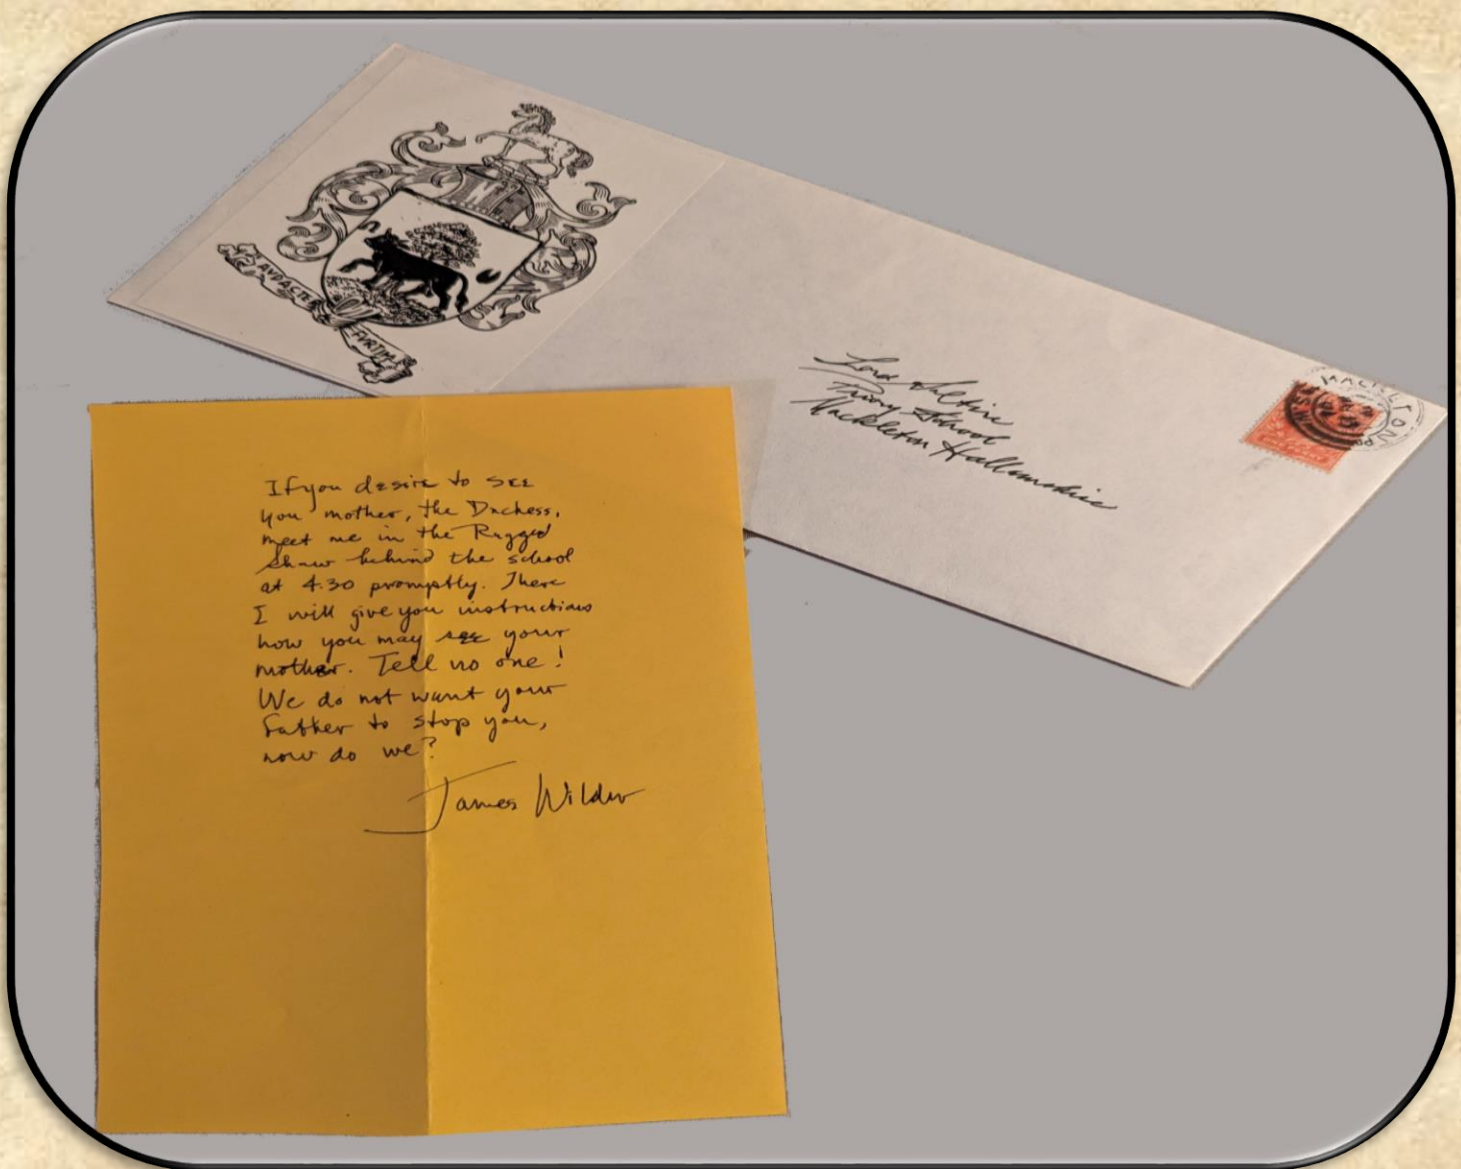 AVDACTER
FVRTIM
Lord Saltire
Priory School
Mackleton Hallamshire
MACKLETON
If you desire to see
you mother, the Duchess,
meet me in the Ragged
Shaw behind the school
at 4:30 promptly. There
I will give you instructions
how you may see your
mother. Tell no one!
We do not want your
father to stop you,
now do we?
James Wilder